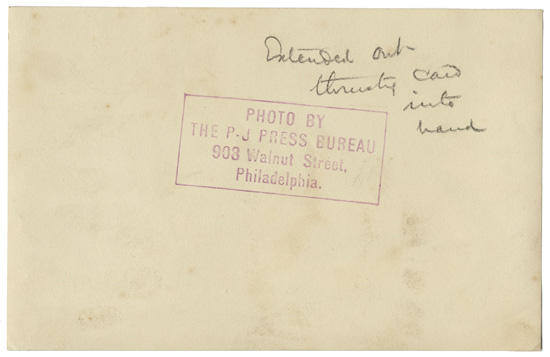 Extended out
thrusting card
into
hand
PHOTO BY
THE P-J PRESS BUREAU
903 Walnut Street,
Philadelphia.